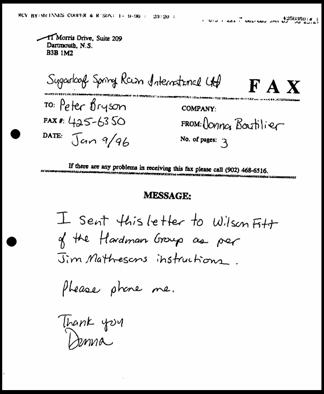 RCV BY:McINNES COOPER & R
11 Morris Drive, Suite 209
Dartmouth, N.S.
B3B 1M2
Sugarloaf Spring Rain International Ltd
FAX
TO: Peter Bryson
COMPANY:
FAX #: 425-6350
FROM: Donna Boutilier
DATE: Jan 9/96
No. of pages: 3
If there are any problems in receiving this fax please call (902) 468-6516.
MESSAGE:
I sent this letter to Wilson Fitt
of the Hardman Group as per
Jim Mathesons instructions.
Please phone me.
Thank you
Donna